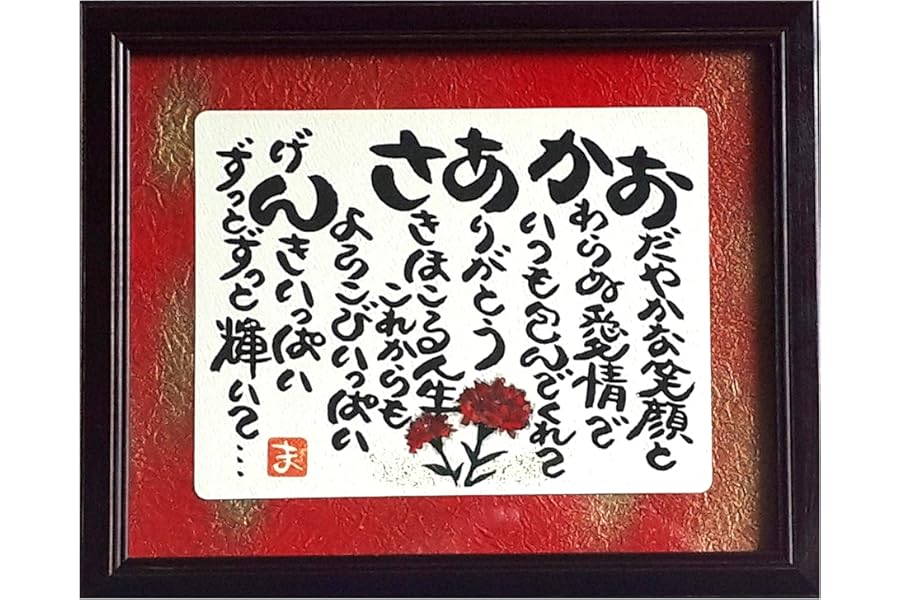 おだやかな笑顔と
かわらぬ愛情で
いつも包んでくれて
ありがとう
さきほこる人生
これからも
よろこびいっぱい
げんきいっぱい
ずっとずっと輝いて…
ま